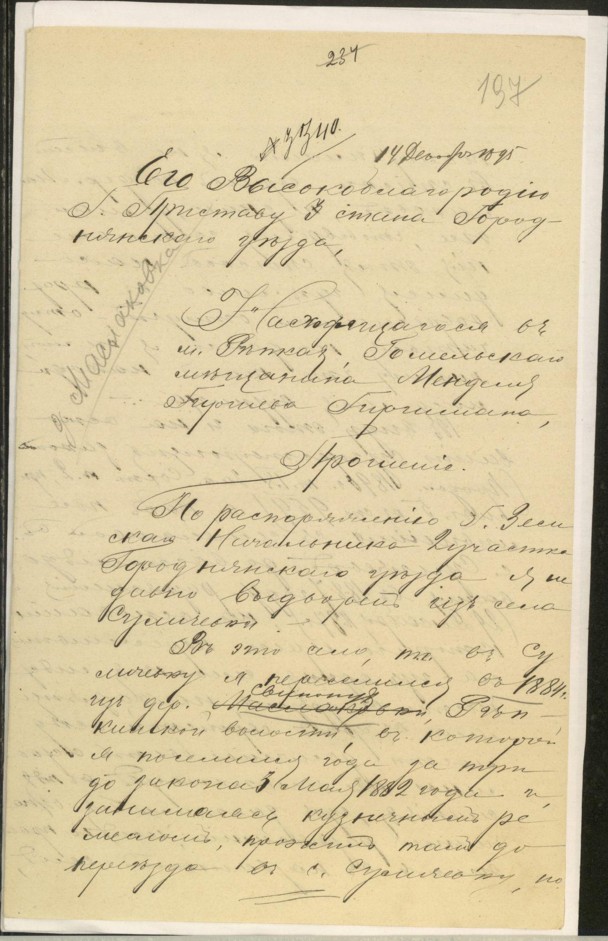 234
197
№ 3340.
14 Декабря 1895
Его Высокоблагородію
Г. Приставу 3 стана Город-
нянскаго уѣзда,
Находящагося въ
м. Рѣпкахъ, Гомельскаго
мѣщанина Менделя
Гиршева
Прошеніе.
По распоряженію Г. Зем
скаго Начальника 2 участка
Городнянскаго уѣзда я не
давно выдворенъ изъ села
Суличевки
Въ это село, т.е. въ Су
личевку я переселился въ 1884 г.
изъ дер. Рѣп-
кинской волости, въ которой
я поселился года за три
до закона 3 Мая 1882 года и,
занимаясь кузнечнымъ ре
месломъ, прожилъ тамъ до
переѣзда въ с. Суличевку, по